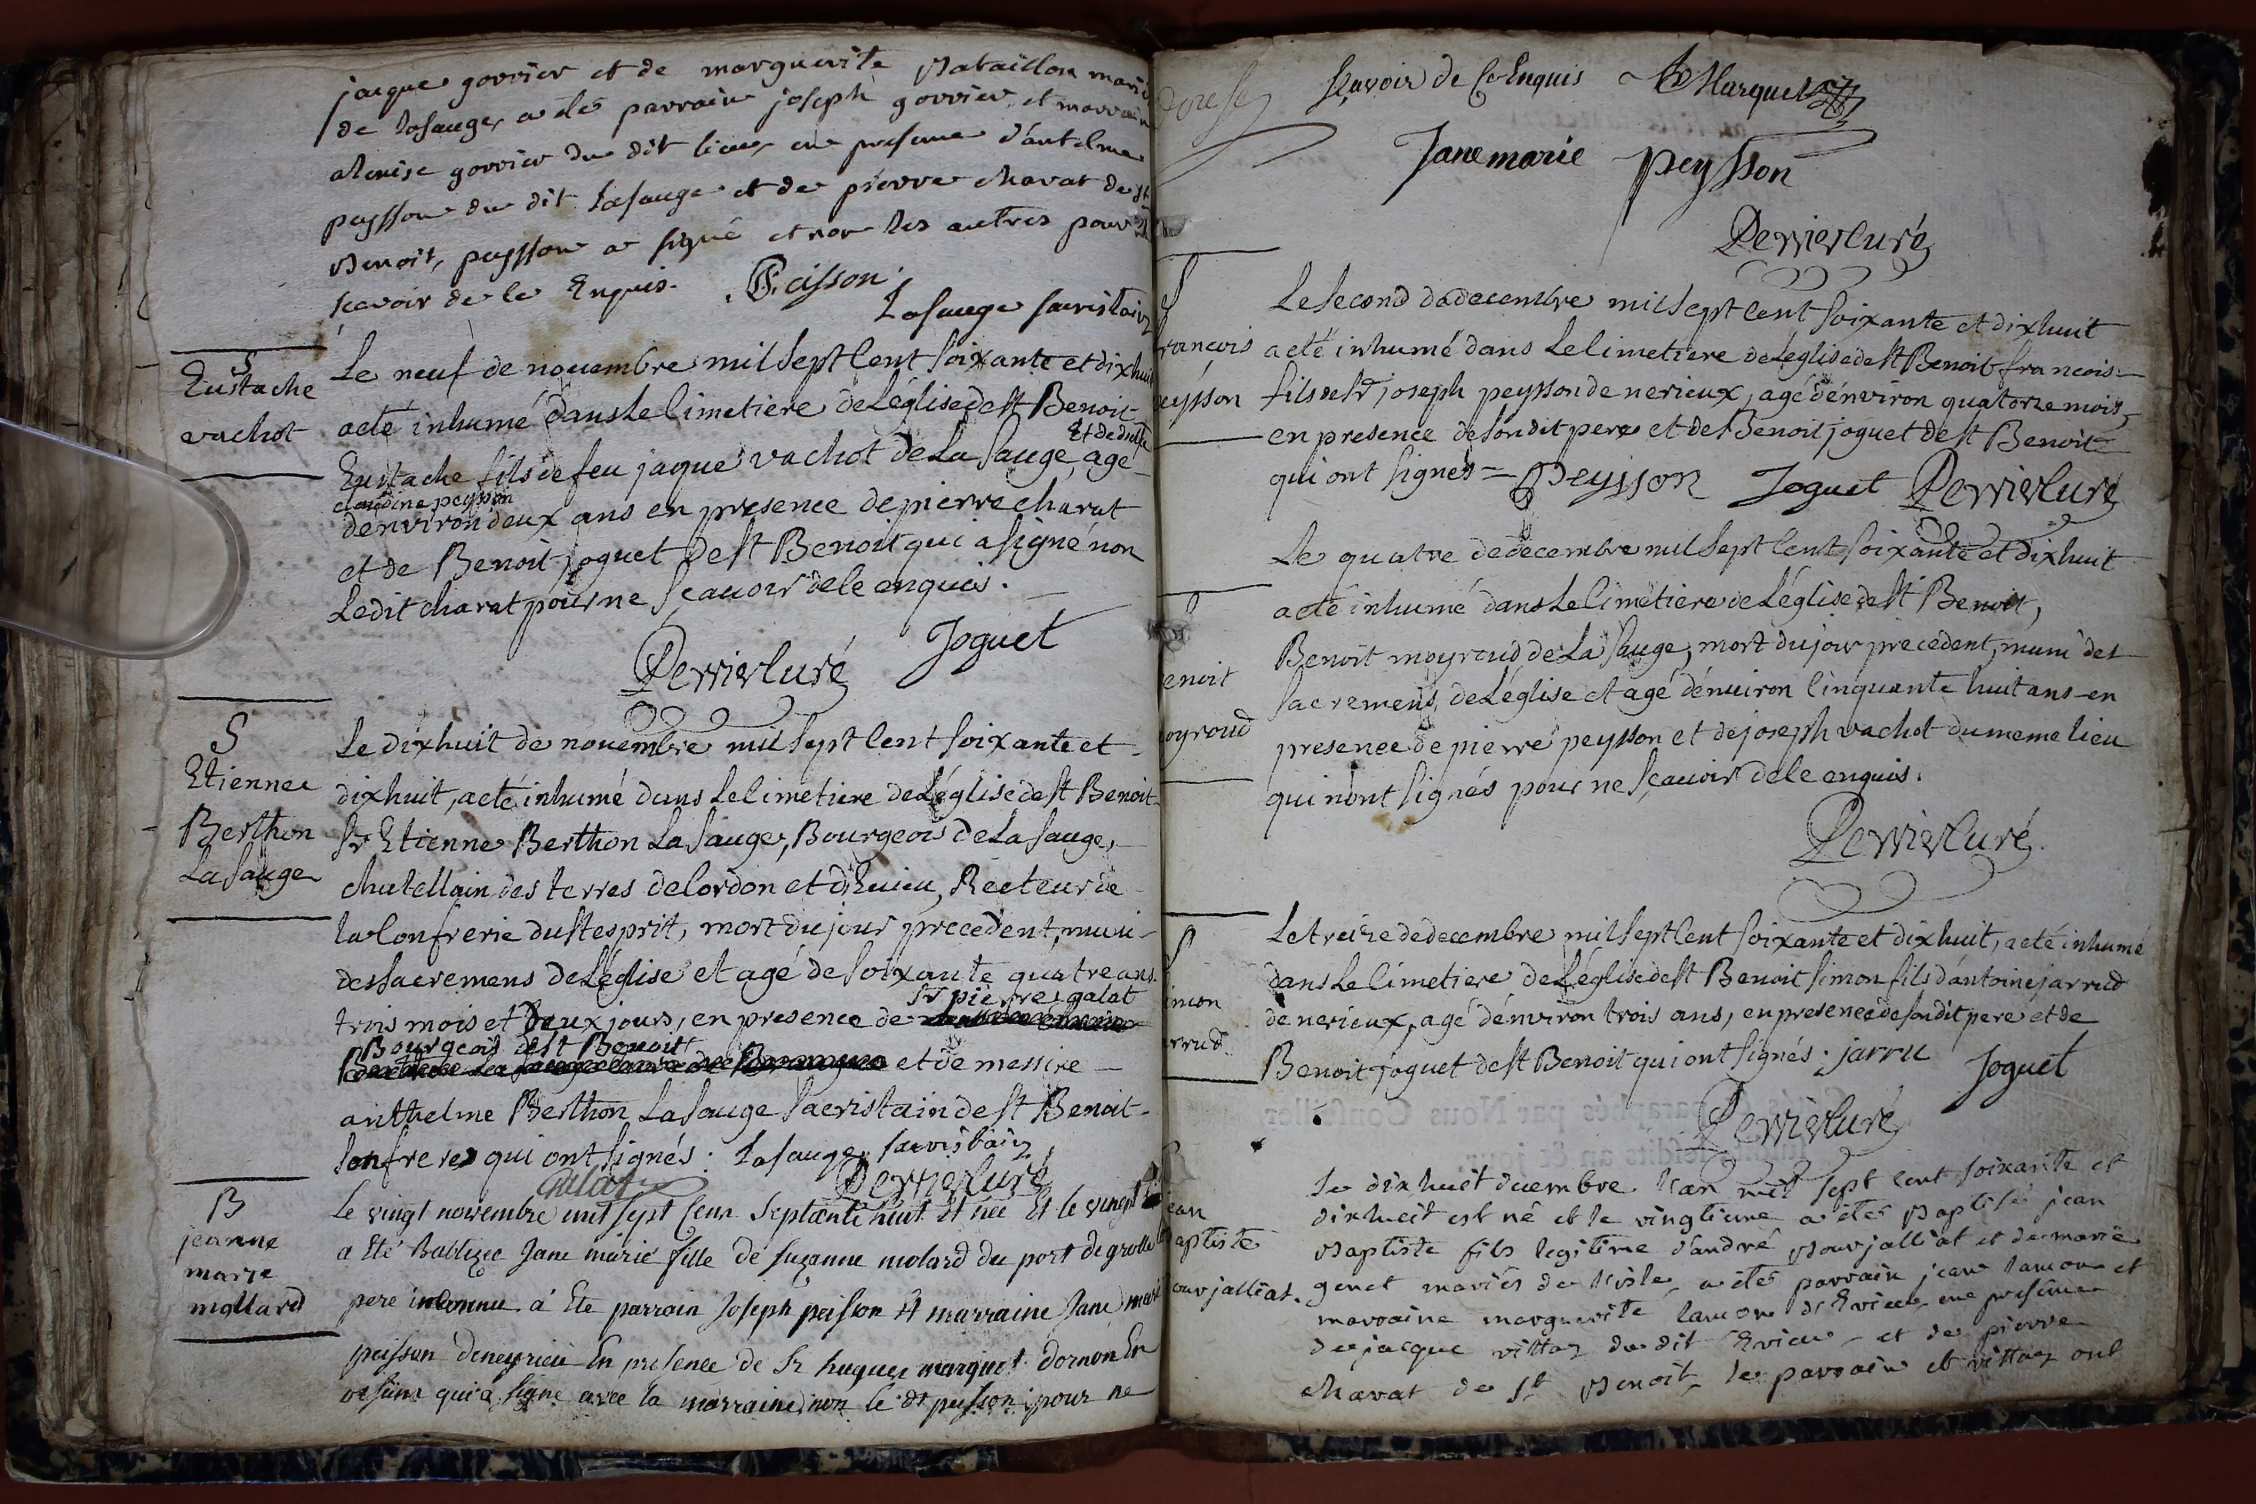 jacque gorrier et de marguerite Bataillon mariés
de Lasauge, a été parrain joseph gorrier et marraine
denise gorrier du dit lieu, en presence d'antelme
peysson du dit Lasauge et de pierre charat de St
Benoit, peysson a signé et non les autres pour ne
scavoir de ce Enquis. Peisson.
Lasauge sacristain
S
Eustache
vachot
Le neuf de novembre mil sept cent soixante et dixhuit
a eté inhumé dans le cimetiere de L'église de St Benoit
et de dlle
Eustache fils de feu jaque vachot de La Sauge, agé
claudine peysson
d'environ deux ans en presence de pierre charat
et de Benoit joguet de St Benoit qui a signé non
Ledit charat pour ne sçavoir de ce enquis.
Perrier Curé Joguet
S
Etienne
Berthon
La Sauge
Le dixhuit de novembre mil sept cent soixante et
dixhuit, a eté inhumé dans le cimetiere de L'église de St Benoit
Sr Etienne Berthon La Sauge, Bourgeois de La Sauge,
chatellain des terres de Cordon et d'Evieu, Recteur de
la Confrerie du St esprit, mort du jour precedent, muni
des sacremens de L'église et agé de soixante quatre ans
Sr pierre galat
trois mois et deux jours, en presence de
Bourgeois de St Benoit
et de messire
anthelme Berthon La Sauge sacristain de St Benoit
son frere qui ont signés. Lasauge sacristain
Galat Perrier Curé
B
jeanne
marie
mollard
Le vingt novembre mil sept cent septante huit Et née Et le vingt
a Eté Batizée Jane marie fille de suzanne molard du port de grolle
pere inconnu a Ete parrain Joseph peisson Et marraine Jane marie
peisson de neyrieu En presence de Sr hugues marquet dornon En
qui a signé avec la marraine non le dt peisson pour ne
sçavoir de Ce Enquis Marquet
Jane marie peysson
Perrier Curé
S
françois
peysson
Le second de decembre mil sept cent soixante et dixhuit
a eté inhumé dans Le cimetiere de L'eglise de St Benoit francois
fils de Sr joseph peysson de nerieux, agé d'énviron quatorze mois,
en presence de son dit pere et de Benoit joguet de St Benoit
qui ont signés = Peysson Joguet Perrier Curé
S
Benoit
moyroud
Le quatre de decembre mil sept cent soixante et dixhuit
a eté inhumé dans Le cimetiere de L'église de St Benoit,
Benoit moyroud de La Sauge, mort du jour precedent, muni des
sacremens de L'église et agé d'énviron cinquante huit ans en
presence de pierre peysson et de joseph vachot du meme lieu
qui n'ont signés pour ne sçavoir de ce enquis.
Perrier Curé
S
simon
jarrud
Le treize de decembre mil sept cent soixante et dixhuit, a eté inhumé
dans Le cimetiere de L'église de St Benoit simon fils d'antoine jarrud
de nerieux, agé d'énviron trois ans, en presence de son dit pere et de
Benoit joguet de St Benoit qui ont signés. jarru Joguet
Perrier Curé
jean
Baptiste
Bourjalliat.
Le dixhuit decembre l'an mil sept cent soixante et
dixhuit est né et le vingtieme a été Baptisé jean
Baptiste fils legitime d'andré Bourjalliat et de marie
genet mariés de Lisle, a été parrain jean lamon et
marraine marguerite lamon d'Evieu, en presence
de jacque vittoz du dit Evieu, et de pierre
charat de St Benoit, le parrain et vittoz ont